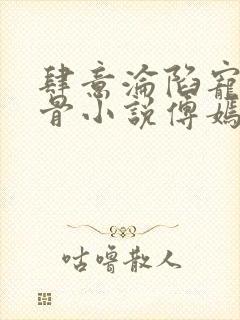 肆意淪陷寵
骨小說傅嫣
咕嚕散人